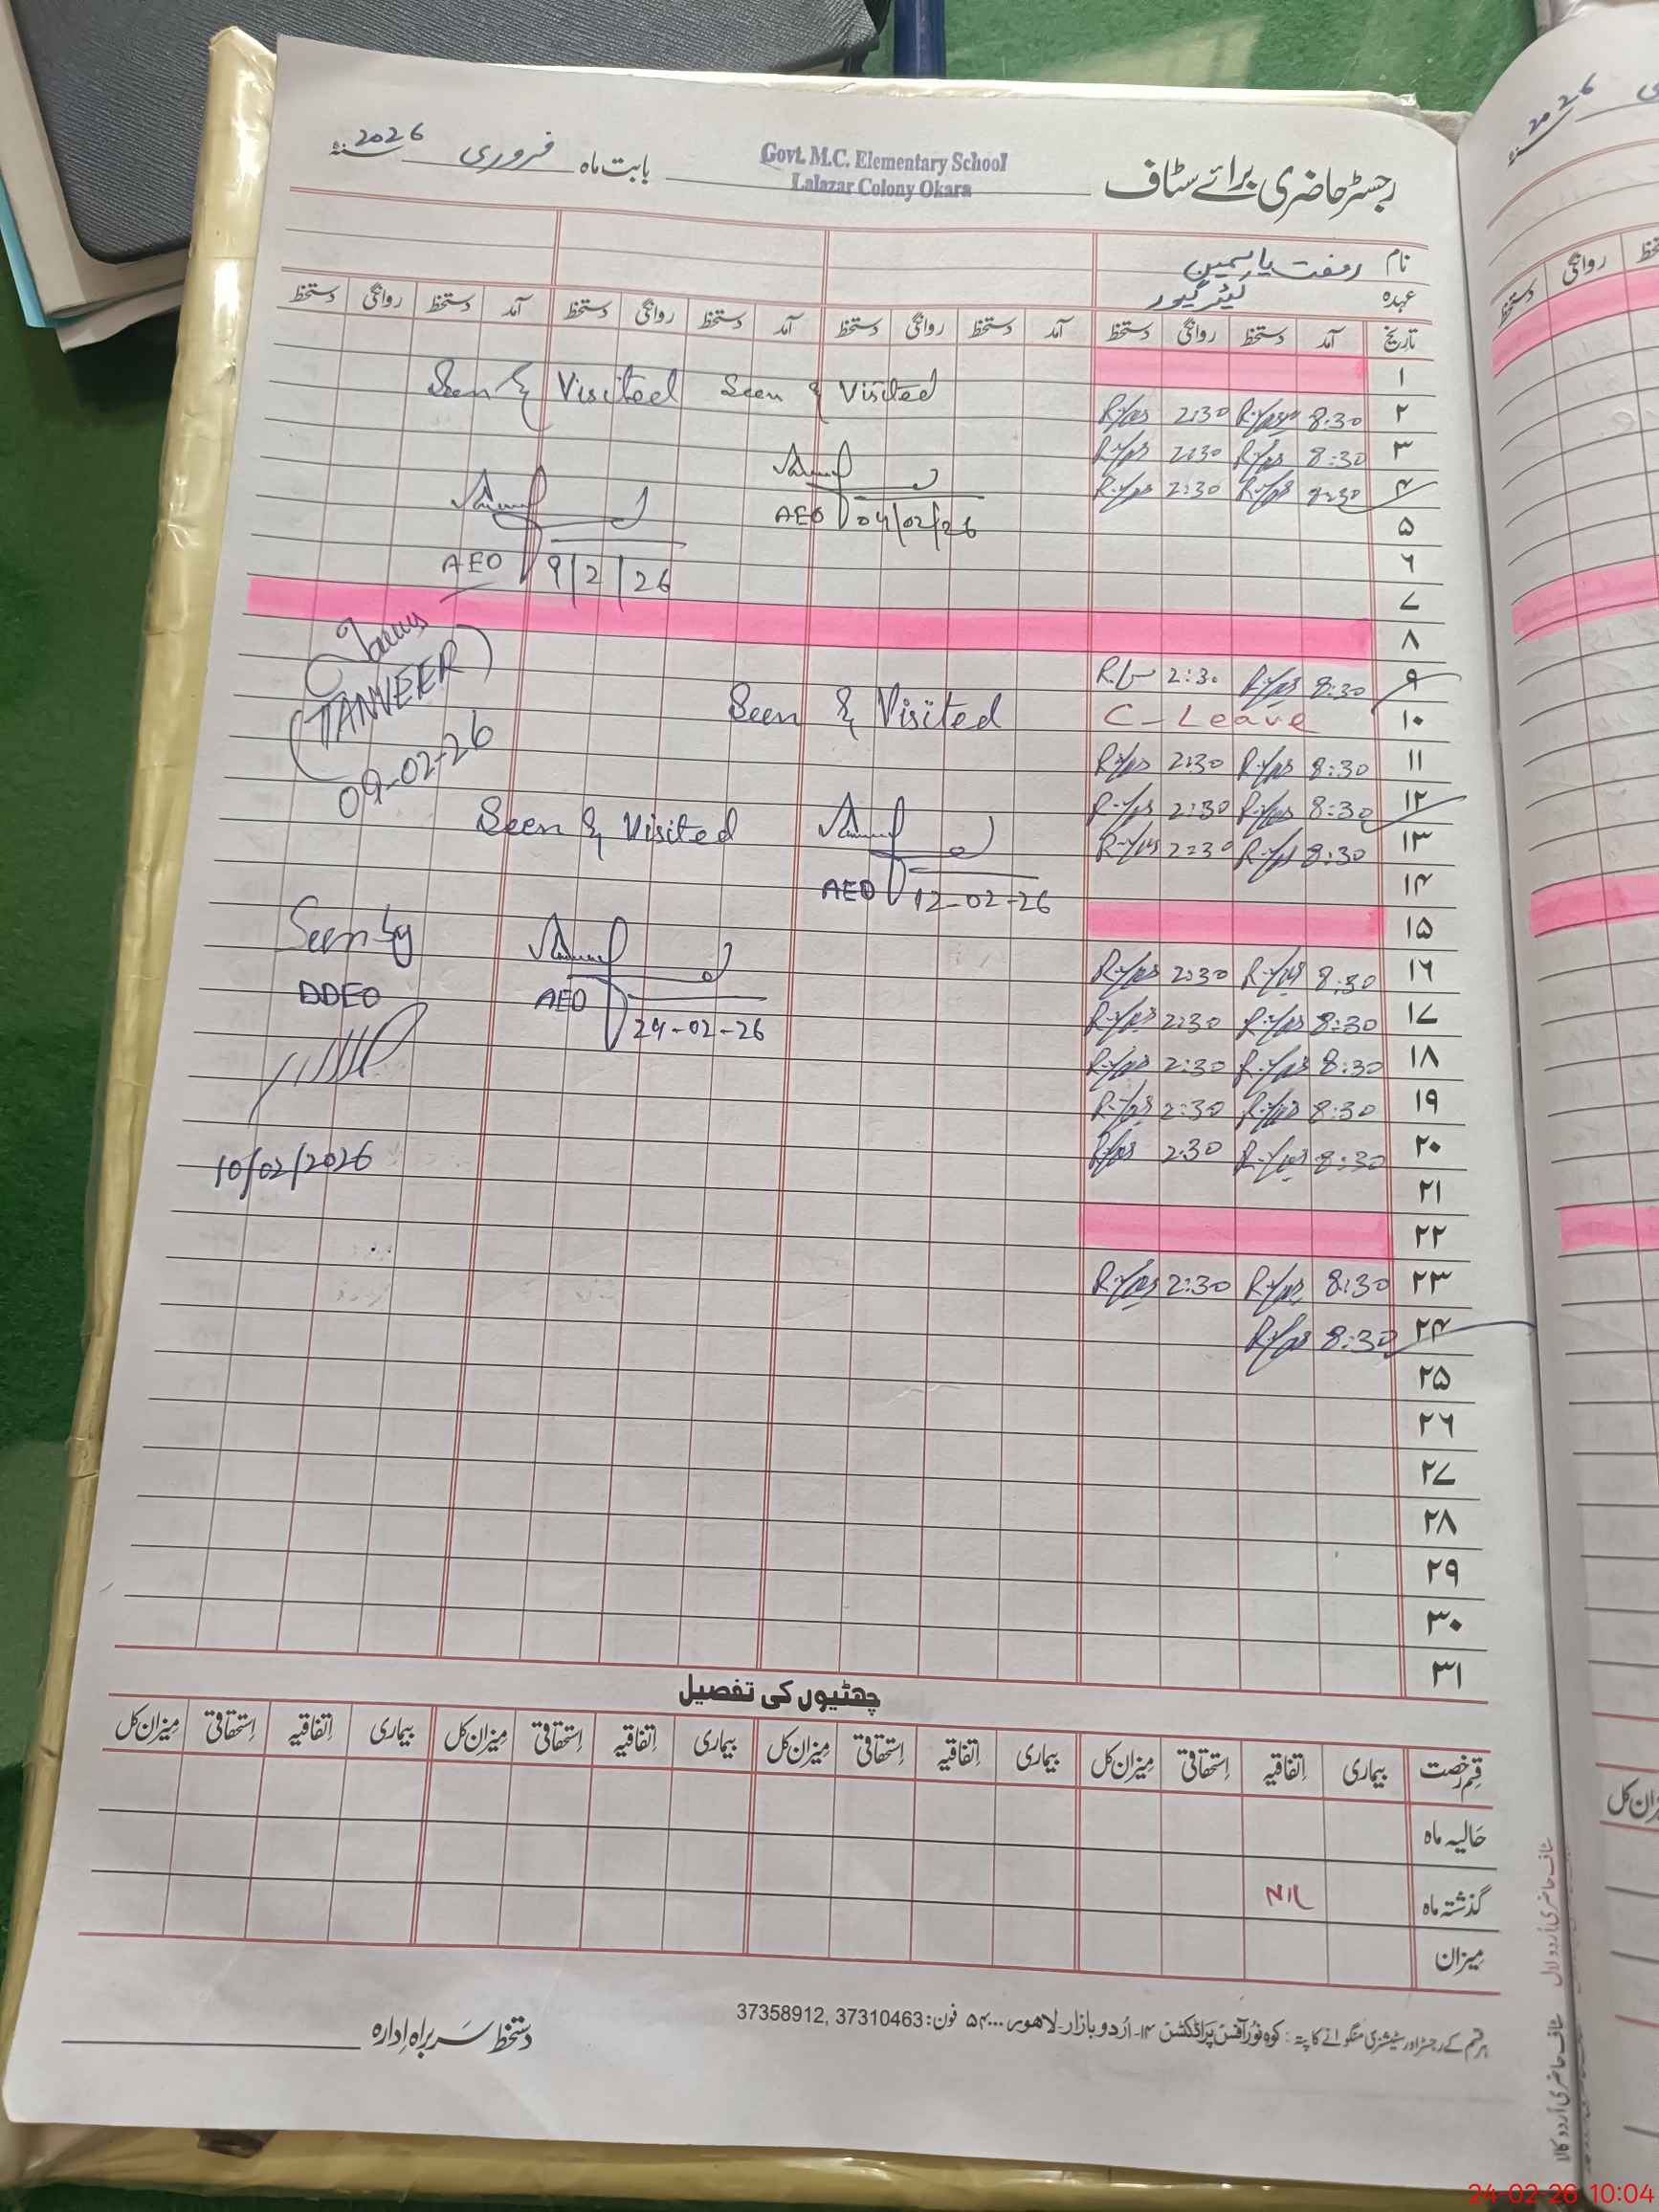 رجسٹر حاضری برائے سٹاف Govt. M.C. Elementary School بابت ماہ فروری 2026
Lalazar Colony Okara
نام رفعت یاسمین
عہدہ کیئر گیور
تاریخ آمد دستخط روانگی دستخط آمد دستخط روانگی دستخط آمد دستخط روانگی دستخط آمد دستخط روانگی دستخط
۱
۲ 8:30 2:30
Seen & Visited
Seen & Visited
۳ 8:30 2:30
۴ 8:30 2:30
AEO 04/02/26
۵
۶
AEO 9/2/26
۷
۸
۹ 8:30 2:30
TANVEER
09-02-26
۱۰ C-Leave
Seen & Visited
۱۱ 8:30 2:30
۱۲ 8:30 2:30
Seen & Visited
۱۳ 8:30 2:30
۱۴
AEO 12-02-26
۱۵
Seen by
DDEO
10/02/2026
۱۶ 8:30 2:30
AEO 24-02-26
۱۷ 8:30 2:30
۱۸ 8:30 2:30
۱۹ 8:30 2:30
۲۰ 8:30 2:30
۲۱
۲۲
۲۳ 8:30 2:30
۲۴ 8:30
۲۵
۲۶
۲۷
۲۸
۲۹
۳۰
۳۱
چھٹیوں کی تفصیل
قسم رخصت بیماری اتفاقیہ استحقاقی میزان کل بیماری اتفاقیہ استحقاقی میزان کل بیماری اتفاقیہ استحقاقی میزان کل بیماری اتفاقیہ استحقاقی میزان کل
حالیہ ماہ
گذشتہ ماہ NIL
میزان
ہر قسم کے رجسٹر اور سٹیشنری منگوانے کا پتہ: کوہ نور آفس پراڈکٹس ۱۴-اُردو بازار-لاہور ۵۴۰۰۰ فون: 37310463, 37358912
دستخط سربراہ ادارہ
2026
روانگی
دستخط
میزان کل
24-02-26 10:04